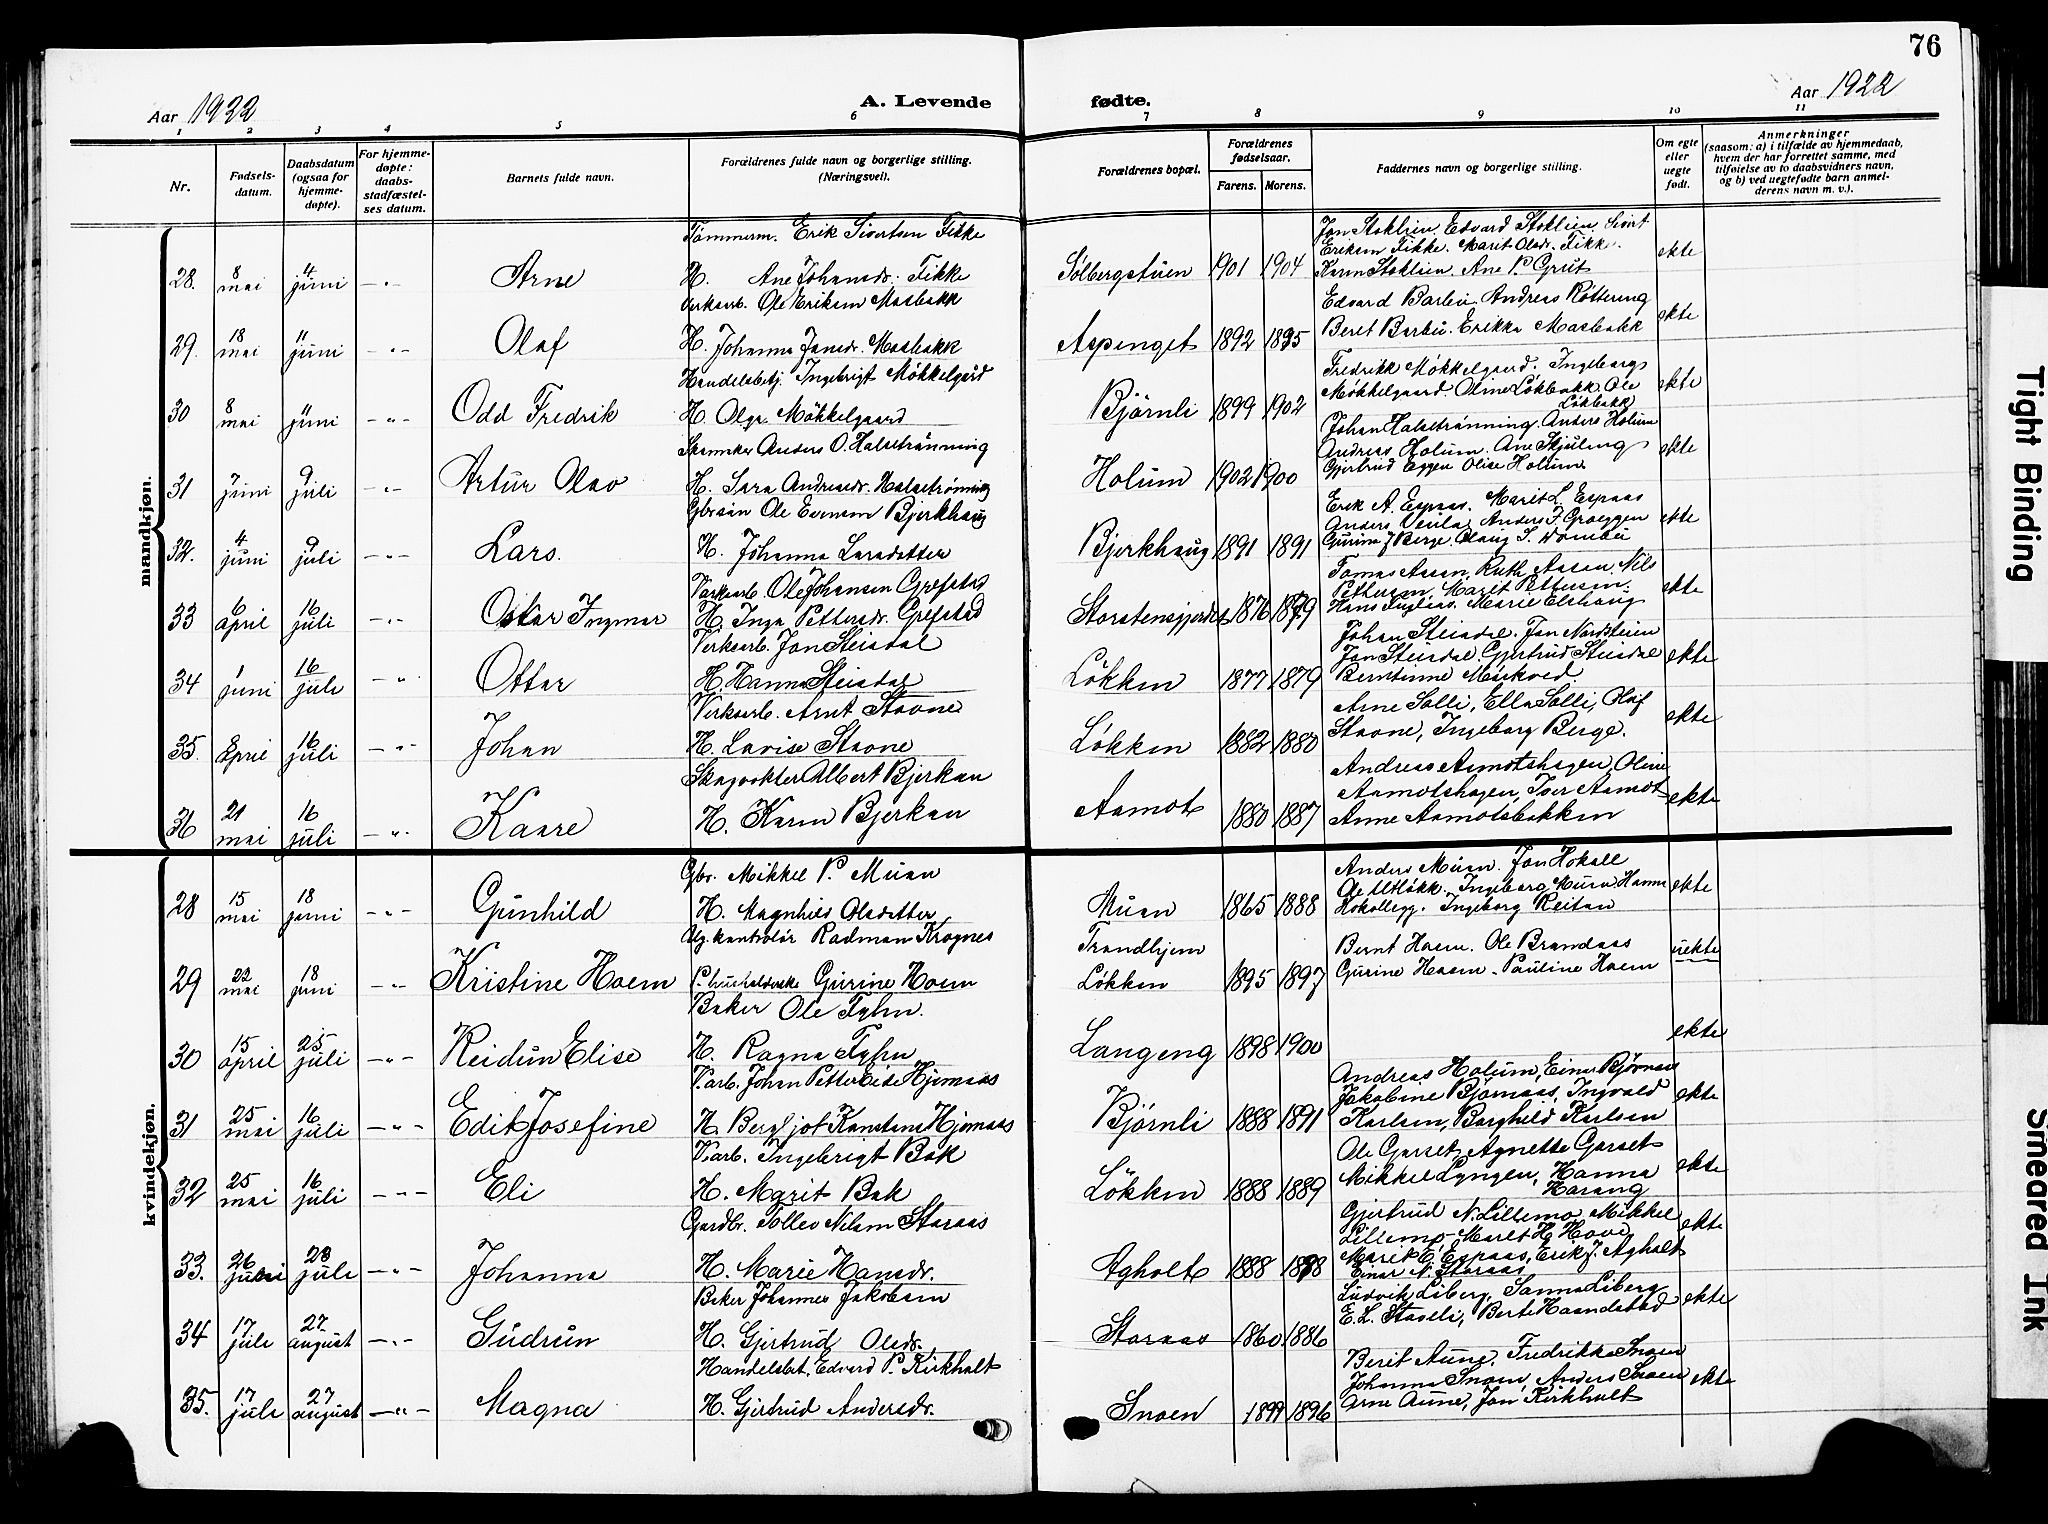 76
Aar 1922
A. Levende fødte.
Aar 1922
1 2 3 4 5 6 7 8 9 10 11
Nr.
Fødsels-
datum.
Daabsdatum
(ogsaa for
hjemme-
døpte).
For hjemme-
døpte:
daabs-
stadfæstel-
ses datum.
Barnets fulde navn.
Forældrenes fulde navn og borgerlige stilling.
(Næringsvei).
Forældrenes bopæl.
Forældrenes
fødselsaar.
Farens. Morens.
Faddernes navn og borgerlige stilling.
Om egte
eller
uegte
født.
Anmerkninger
(saasom: a) i tilfælde av hjemmedaab,
hvem der har forrettet samme, med
tilføielse av to daabsvidners navn,
og b) ved uegtefødte barn anmel-
derens navn m. v.).
mandkjøn.
28. 8 mai 4 juni - " - Arne
Tømmerm. Erik Sivertsen Fikke
H. Ane Johansdr. Fikke
Solbergstuen 1901 1904
Jon Stoklien. Edvard Stoklien. Sivert
Eriksen Fikke. Marit Olsdr. Fikke.
Karen Stoklien, Ane P. Grut
ekte
29. 18 mai 11 juni - " - Olaf
Verksarb. Ole Eriksen Masbakk
H. Johanna Jonsdr. Masbakk
Aspenget 1892 1895
Edvard Barbu. Andreas Røttering
Beret Barbu. Erikka Masbakk
ekte
30 8 mai 11 juni - " - Odd Fredrik
Handelsbetj. Ingebrigt Møkkelgård
H. Olga Møkkelgaard
Bjørnli 1899 1902
Fredrikk Møkkelgaard. Ingeborg
Møkkelgaard. Oline Løkbakk. Ole
Løkbakk
ekte
31 7 juni 9 juli - " - Artur Olav
Anders O. Halsetrønning
H. Sara Andreasdr. Halsetrønning
Holum 1902 1900
Johan Halsetrønning. Anders Holum
Andreas Holum. Ane Skjuleng
Gjertrud Eggen Olise Holum.
ekte
32. 4 juni 9 juli - " - Lars.
Gbrsøn Ole Evensen Bjerkhaug
H. Johanna Larsdatter
Bjerkhaug 1891 1891
Erik A. Espaas. Marit L. Espaas
Anders Venla, Anders J. Groeggen
Gurina J Berge. Olaug S. Wombu
ekte
33 6 april 16 juli - " - Oskar Ingmar
Verksarb. Ole Johansen Grefstad
H. Inga Pettersdr. Grefstad
1876 1879
Tomas Aasen, Ruth Aasen, Nils
Pettersen, Marit Pettersen.
Hans Fuglås. Marie Elshaug
ekte
34 1 juni 16 juli - " - Ottar
Verksarb. Jon Steisdal
H. Hanna Steisdal
Løkken 1877 1879
Johan Steisdal. Jon Nordsteien
Jon Steisdal. Gjertrud Steisdal
Berntinne Mørkved.
ekte
35. 8 april 16 juli - " - Johan
Verksarb. Arnt Stavne
H. Lavise Stavne
Løkken 1882 1880
Arne Solli, Ella Solli, Olaf
Stavne, Ingeborg Berge.
ekte
36 21 mai 16 juli - " - Kaare
Skogvokter Albert Bjerkan
H. Karen Bjerkan
Aamot 1880 1887
Andreas Aamotshagen, Oline
Aamotshagen, Iver Aamot
Anne Aamotsbakken
ekte
kvindekjøn.
28 15 mai 18 juni - " - Gunhild
Gbr. Mikkel P. Muan
H. Magnhild Olsdatter
Muan 1865 1888
Anders Muan. Jon Hokall
Ole Utløkk. Ingeborg Muan. Hanna
Hokollegg. Ingeborg Reitan
ekte
29 22 mai 18 juni - " - Kristine Hoem
kontrolør Radman Krognes
Gurine Hoem
Trondhjem
Løkken 1895 1897
Bernt Hoem. Ole Brandaas
Gurine Hoem. Pauline Hoem
uekte
30 15 april 25 juli - " - Reidun Elise
Baker Ole Fyhn.
H. Ragna Fyhn
Langeng 1898 1900
ekte
31 25 mai 16 juli - " - Edit Josefine
Varb. Johan Petter Eide Hjemaas
H. Bergljot Konstanse Hjemaas
Bjørnli 1888 1891
Andreas Holum, Einar Bjørnaas
Jakobine Bjørnaas, Ingvald
Karlsen, Borghild Karlsen
ekte
32 25 mai 16 juli - " - Eli
Varb. Ingebrigt Bak
H. Marit Bak
Løkken 1888 1889
Ole Garset, Agnette Garset
Mikkel Lyngen, Hanna
Harang
ekte
33. 26 juni 23 juli - " - Johanna
Gardbr. Tollev Nilsen Storaas
H. Marie Hansdr.
Agholt 1888 1888
Gjertrud N. Lillemo, Mikkel
Lillemo, Marit H. Hove
Marit E. Espaas, Erik J. Agholt
Einar N. Storaas
ekte
34 17 juli 27 august - " - Gudrun
Baker Johannes Jakobsen
H. Gjertrud Olsdr.
Storaas 1860 1886
Ludvik Liberg, Sanna Liberg
E. L. Staveli, Berte Haandstad
ekte
35. 17 juli 27 august - " - Magna
Handelsbet. Edvard P. Kirkholt
H. Gjertrud Andersdr.
Snoen 1899 1896
Berit Aune, Fredrikka Snoen
Johanna Snoen, Anders Snoen
Arne Aune, Jon Kirkholt
ekte
Tight Binding
Smeared Ink